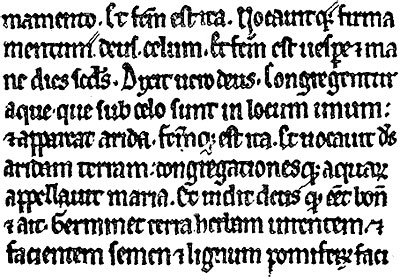 mamento. Et fcm̄ est ita. Vocauitqꝫ firma
mentum deus celum. Et fcm̄ est uesꝑe ⁊ ma
ne dies scd̄s. Dixit uero deus. Congregentur
aque que sub celo sunt in locum unum:
⁊ appareat arida. fcm̄qꝫ est ita. Et uocauit ds̄
aridam terram: congregationesqꝫ aquaꝝ
appellauit maria. Et uidit deus ꝙ eēt bon̄
⁊ ait. Germinet terra herbam uirentem ⁊
facientem semen ⁊ lignum pomifeꝝ faci